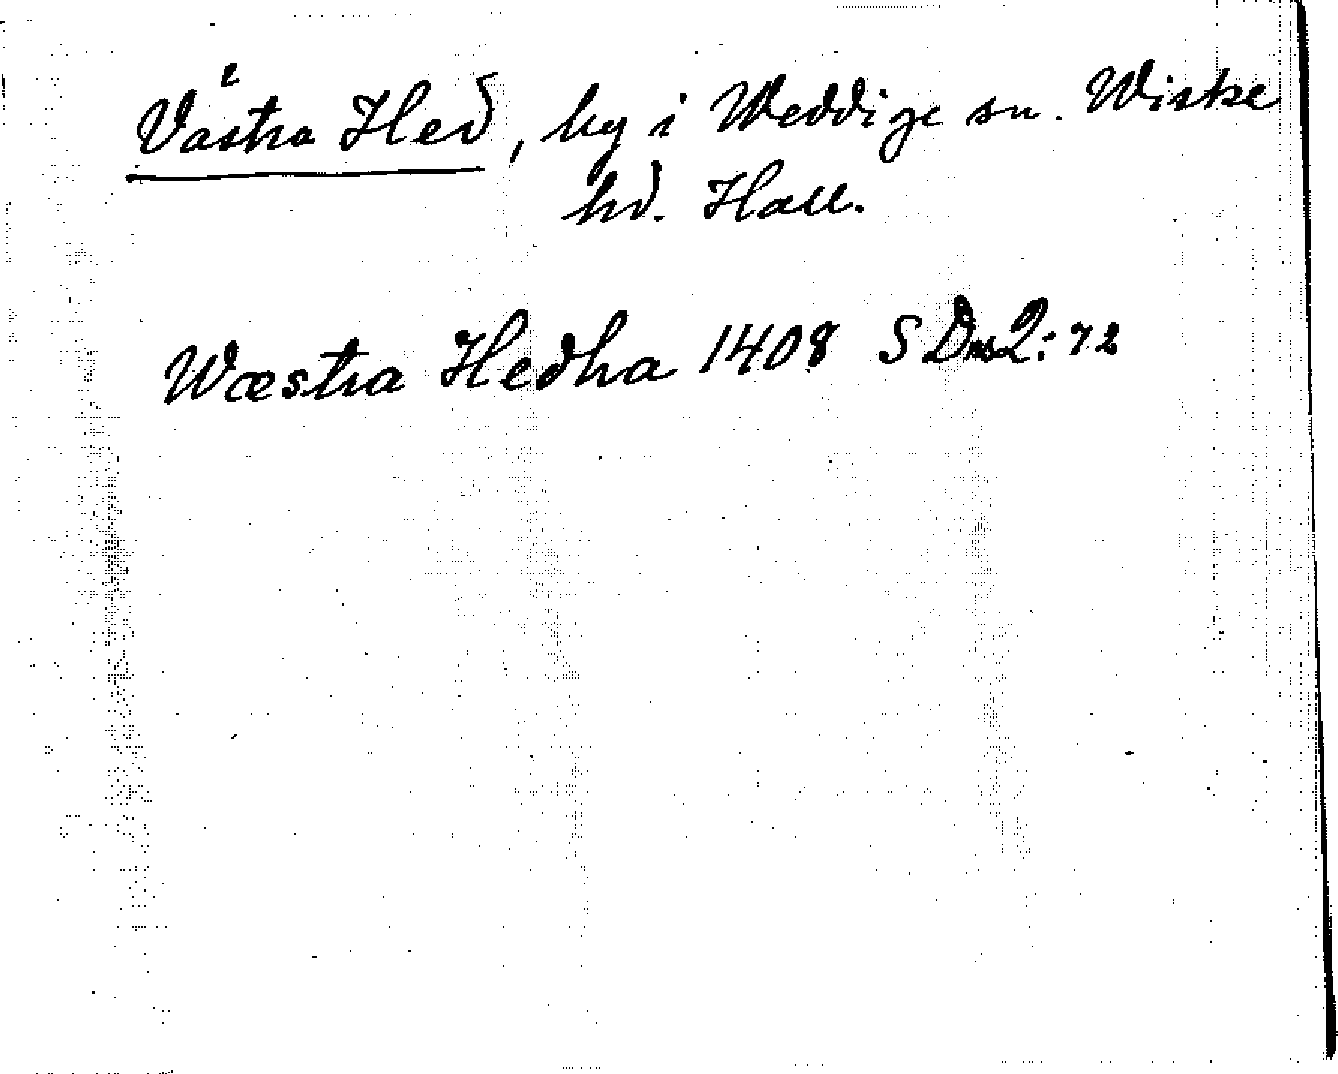 Västra Hed, by i Weddige sn. Wiske
hd. Hall.
Wæstra Hedha 1408 SDns2:72